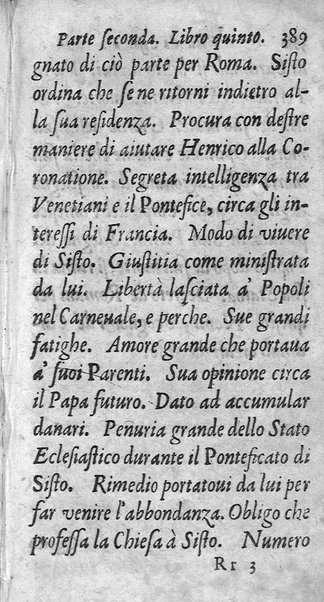 Parte seconda. Libro quinto. 389
gnato di ciò parte per Roma. Sisto
ordina che se ne ritorni indietro al-
la sua residenza. Procura con destre
maniere di aiutare Henrico alla Co-
ronatione. Segreta intelligenza tra
Venetiani e il Pontefice, circa gli in-
teressi di Francia. Modo di viuere
di Sisto. Giustitia come ministrata
da lui. Libertà lasciata a' Popoli
nel Carneuale, e perche. Sue grandi
fatighe. Amore grande che portaua
a' suoi Parenti. Sua opinione circa
il Papa futuro. Dato ad accumular
danari. Penuria grande dello Stato
Eclesiastico durante il Ponteficato di
Sisto. Rimedio portatoui da lui per
far venire l'abbondanza. Obligo che
professa la Chiesa à Sisto. Numero
Rr 3